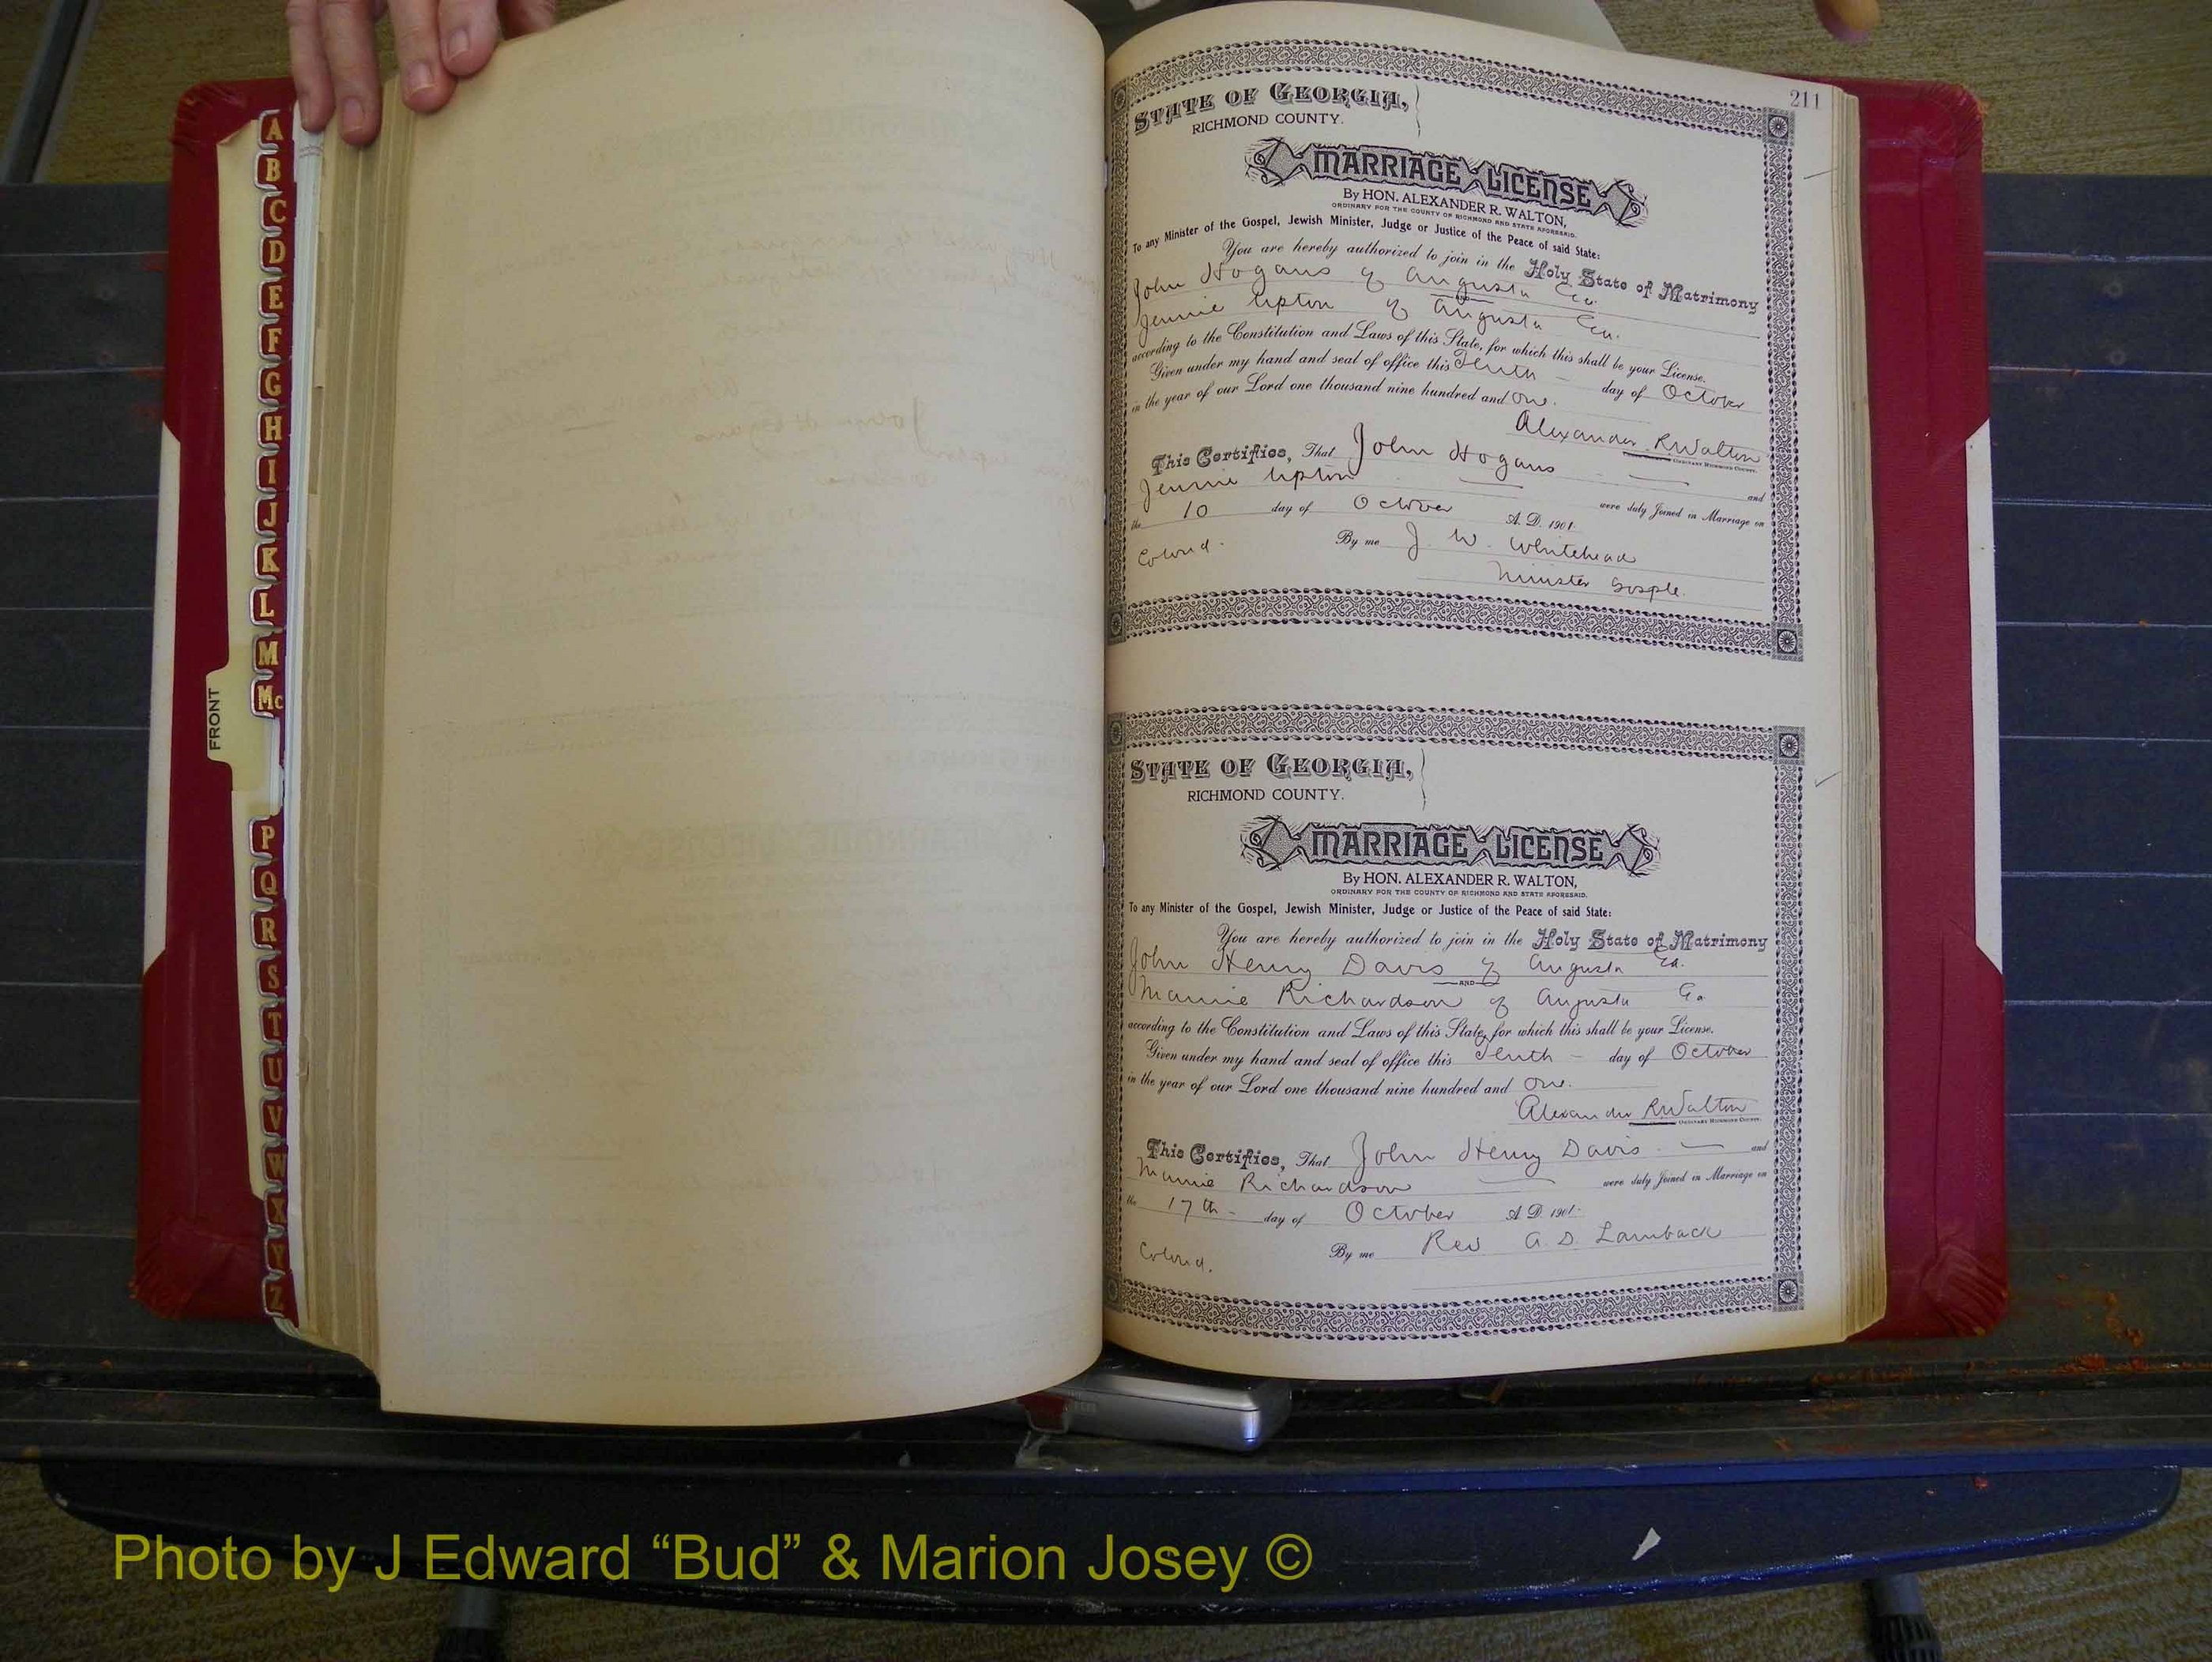 A
B
C
D
E
F
G
H
I
J
K
L
M
Mc
FRONT
P
Q
R
S
T
U
V
W
X
Y
Z
211
STATE OF GEORGIA,
RICHMOND COUNTY.
MARRIAGE LICENSE
By HON. ALEXANDER R. WALTON,
ORDINARY FOR THE COUNTY OF RICHMOND AND STATE AFORESAID.
To any Minister of the Gospel, Jewish Minister, Judge or Justice of the Peace of said State:
You are hereby authorized to join in the Holy State of Matrimony
John Hogans of Augusta Ga.
Jennie Upton of Augusta Ga.
according to the Constitution and Laws of this State, for which this shall be your License.
Given under my hand and seal of office this Tenth - day of October
in the year of our Lord one thousand nine hundred and One.
Alexander R Walton
ORDINARY RICHMOND COUNTY.
This Certifies, That John Hogans and
Jennie Upton were duly Joined in Marriage on
the 10 day of October A. D. 1901.
Colored. By me J. W. Whitehead
Minister Gosple.
STATE OF GEORGIA,
RICHMOND COUNTY.
MARRIAGE LICENSE
By HON. ALEXANDER R. WALTON,
ORDINARY FOR THE COUNTY OF RICHMOND AND STATE AFORESAID.
To any Minister of the Gospel, Jewish Minister, Judge or Justice of the Peace of said State:
You are hereby authorized to join in the Holy State of Matrimony
John Henry Davis of Augusta Ga.
AND
Mamie Richardson of Augusta Ga
according to the Constitution and Laws of this State, for which this shall be your License.
Given under my hand and seal of office this Tenth - day of October
in the year of our Lord one thousand nine hundred and One.
Alexander R Walton
ORDINARY RICHMOND COUNTY.
This Certifies, That John Henry Davis and
Mamie Richardson were duly Joined in Marriage on
the 17th - day of October A. D. 1901.
Colored. By me Rev A. D. Lamback
Photo by J Edward “Bud” & Marion Josey ©